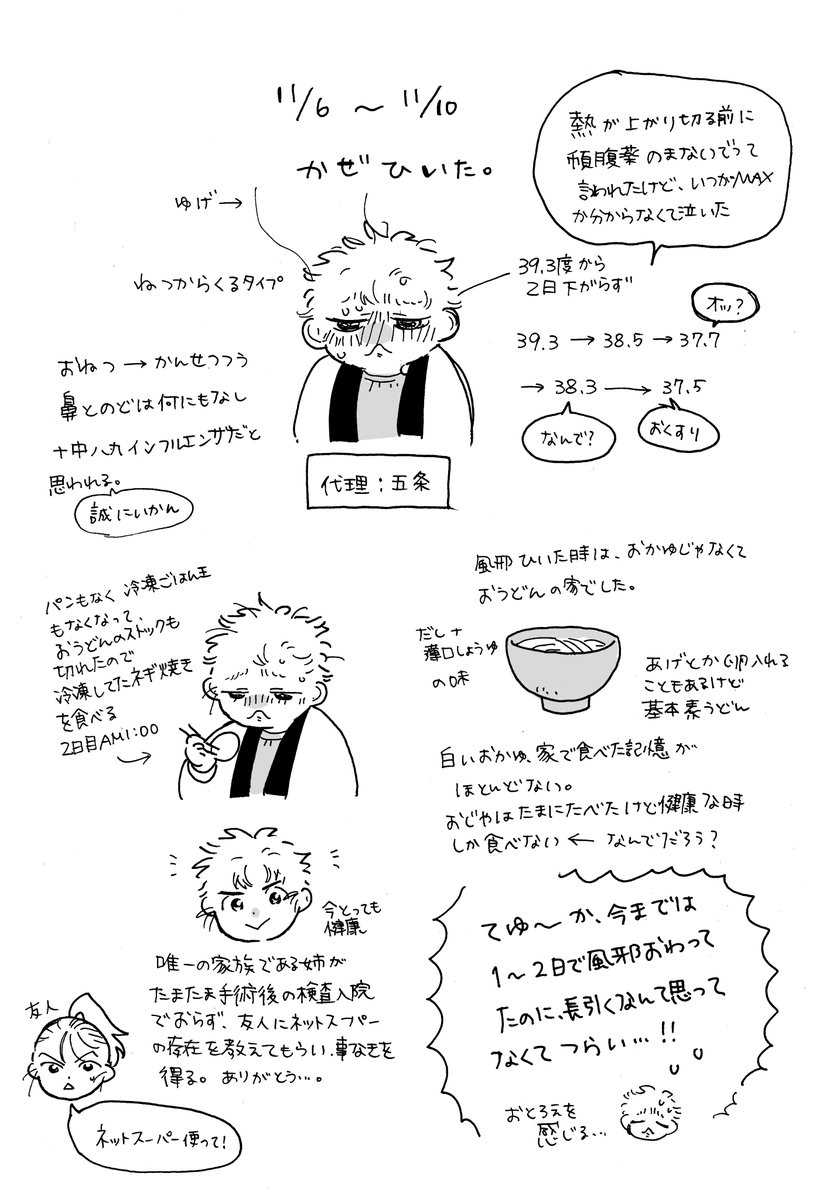 11/6 〜 11/10
かぜひいた。
熱が上がり切る前に
頓腹薬のまないでって
言われたけど、いつがMAX
か分からなくて泣いた
ゆげ→
ねつからくるタイプ
39.3度から
2日下がらず
おねつ → かんせつつう
鼻とのどは何にもなし
十中八九インフルエンザだと
思われる。
誠にいかん
オッ?
39.3 → 38.5 → 37.7
→ 38.3 → 37.5
なんで?
おくすり
代理:五条
パンもなく 冷凍ごはん玉
もなくなって、
おうどんのストックも
切れたので
冷凍してたネギ焼き
を食べる
2日目AM1:00
風邪ひいた時は、おかゆじゃなくて
おうどんの家でした。
だし+
薄口しょうゆ
の味
あげとか卵入れる
こともあるけど
基本素うどん
白いおかゆ、家で食べた記憶が
ほとんどない。
おじやはたまにたべたけど健康な時
しか食べない ← なんでだろう?
今とっても
健康
唯一の家族である姉が
たまたま手術後の検査入院
でおらず、友人にネットスーパー
の存在を教えてもらい、事なきを
得る。ありがとう…。
友人
ネットスーパー使って!
てゆ〜か、今までは
1〜2日で風邪おわって
たのに、長引くなんて思って
なくてつらい…!!
おとろえを
感じる…